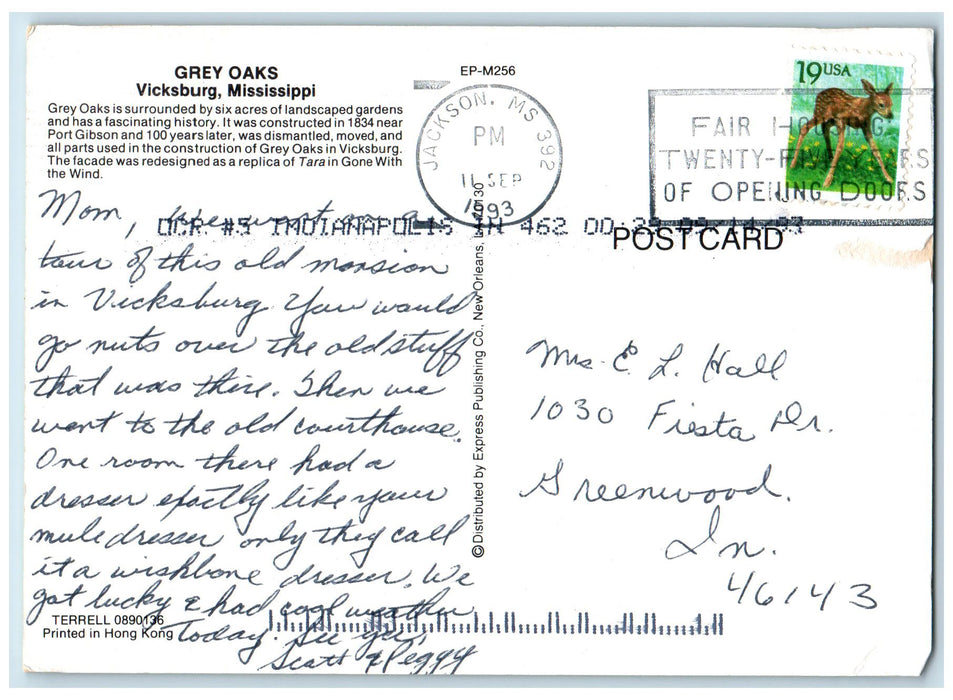 GREY OAKS
Vicksburg, Mississippi
Grey Oaks is surrounded by six acres of landscaped gardens
and has a fascinating history. It was constructed in 1834 near
Port Gibson and 100 years later, was dismantled, moved, and
all parts used in the construction of Grey Oaks in Vicksburg.
The facade was redesigned as a replica of Tara in Gone With
the Wind.
EP-M256
JACKSON, MS 392
PM
11 SEP
1993
19 USA
FAIR HOUSING,
TWENTY-FIVE YEARS
OF OPENING DOORS
OCR #5 INDIANAPOLIS IN 462
POST CARD
Mom, we went on a
tour of this old mansion
in Vicksburg. You would
go nuts over the old stuff
that was there. Then we
went to the old courthouse.
One room there had a
dresser exactly like your
mule dresser only they call
it a wishbone dresser. We
got lucky & had cool weather
today. See ya,
Scott & Peggy
©Distributed by Express Publishing Co., New Orleans, 70130
Mrs. E. L. Hall
1030 Fiesta Dr.
Greenwood.
In.
46143
TERRELL 0890136
Printed in Hong Kong